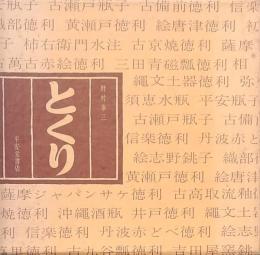 子 黄瀬戸瓶子 古備前徳利 信楽
部徳利 黄瀬戸徳利 絵唐津徳利 初
子 柿右衛門水注 古京焼徳利 薩摩
古万古赤絵徳利 三田青磁瓢徳利 相
縄文土器徳利 弥
須恵水瓶 平安瓶子
古瀬戸瓶子 古備
信楽徳利 丹波赤ど
絵志野銚子 織部
黄瀬戸徳利 絵唐
薩摩ジャパンサケ徳利 古高取流釉
焼徳利 沖縄酒瓶 井戸徳利 縄文
古信楽徳利 丹波赤どべ徳利 絵
里徳利 古九谷瓢徳利 吉田屋窯銚
とくり
平安堂書店